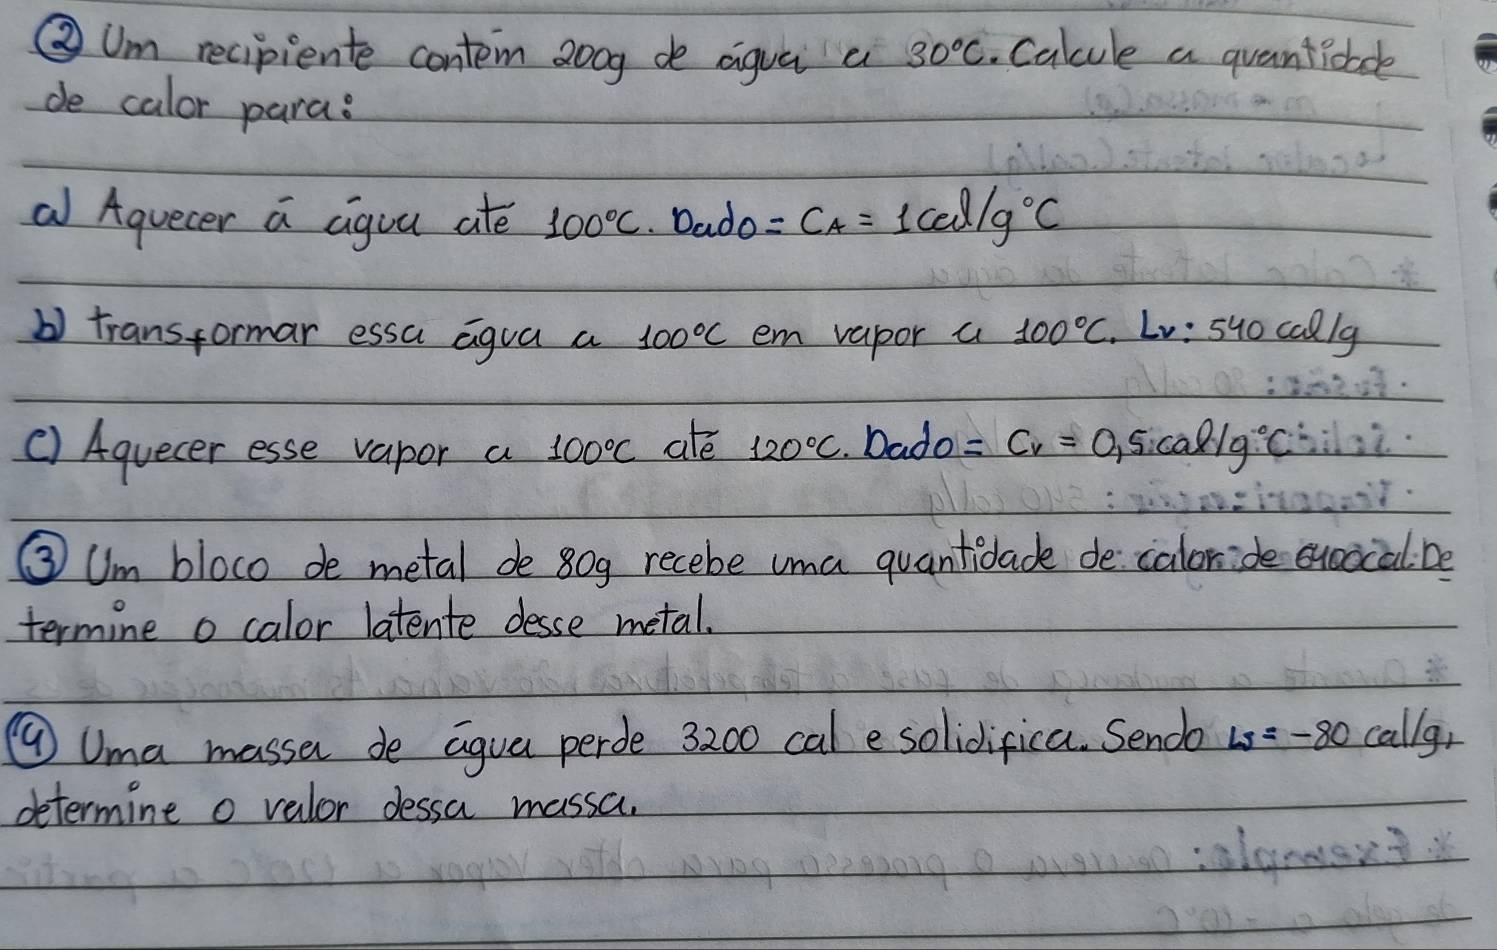 ② Um recipiente contém 200g de água a 30°C. Calcule a quantidade
de calor para:
a) Aquecer á água até 100°C. Dado = CA = 1cal/g°C
b) transformar essa água a 100°C em vapor a 100°C. Lv: 540 cal/g
c) Aquecer esse vapor a 100°C até 120°C. Dado = Cv = 0,5 cal/g°C
③ Um bloco de metal de 80g recebe uma quantidade de calor de cal. De
termine o calor latente desse metal.
④ Uma massa de água perde 3200 cal e solidifica. Sendo Ls = -80 cal/g,
determine o valor dessa massa.